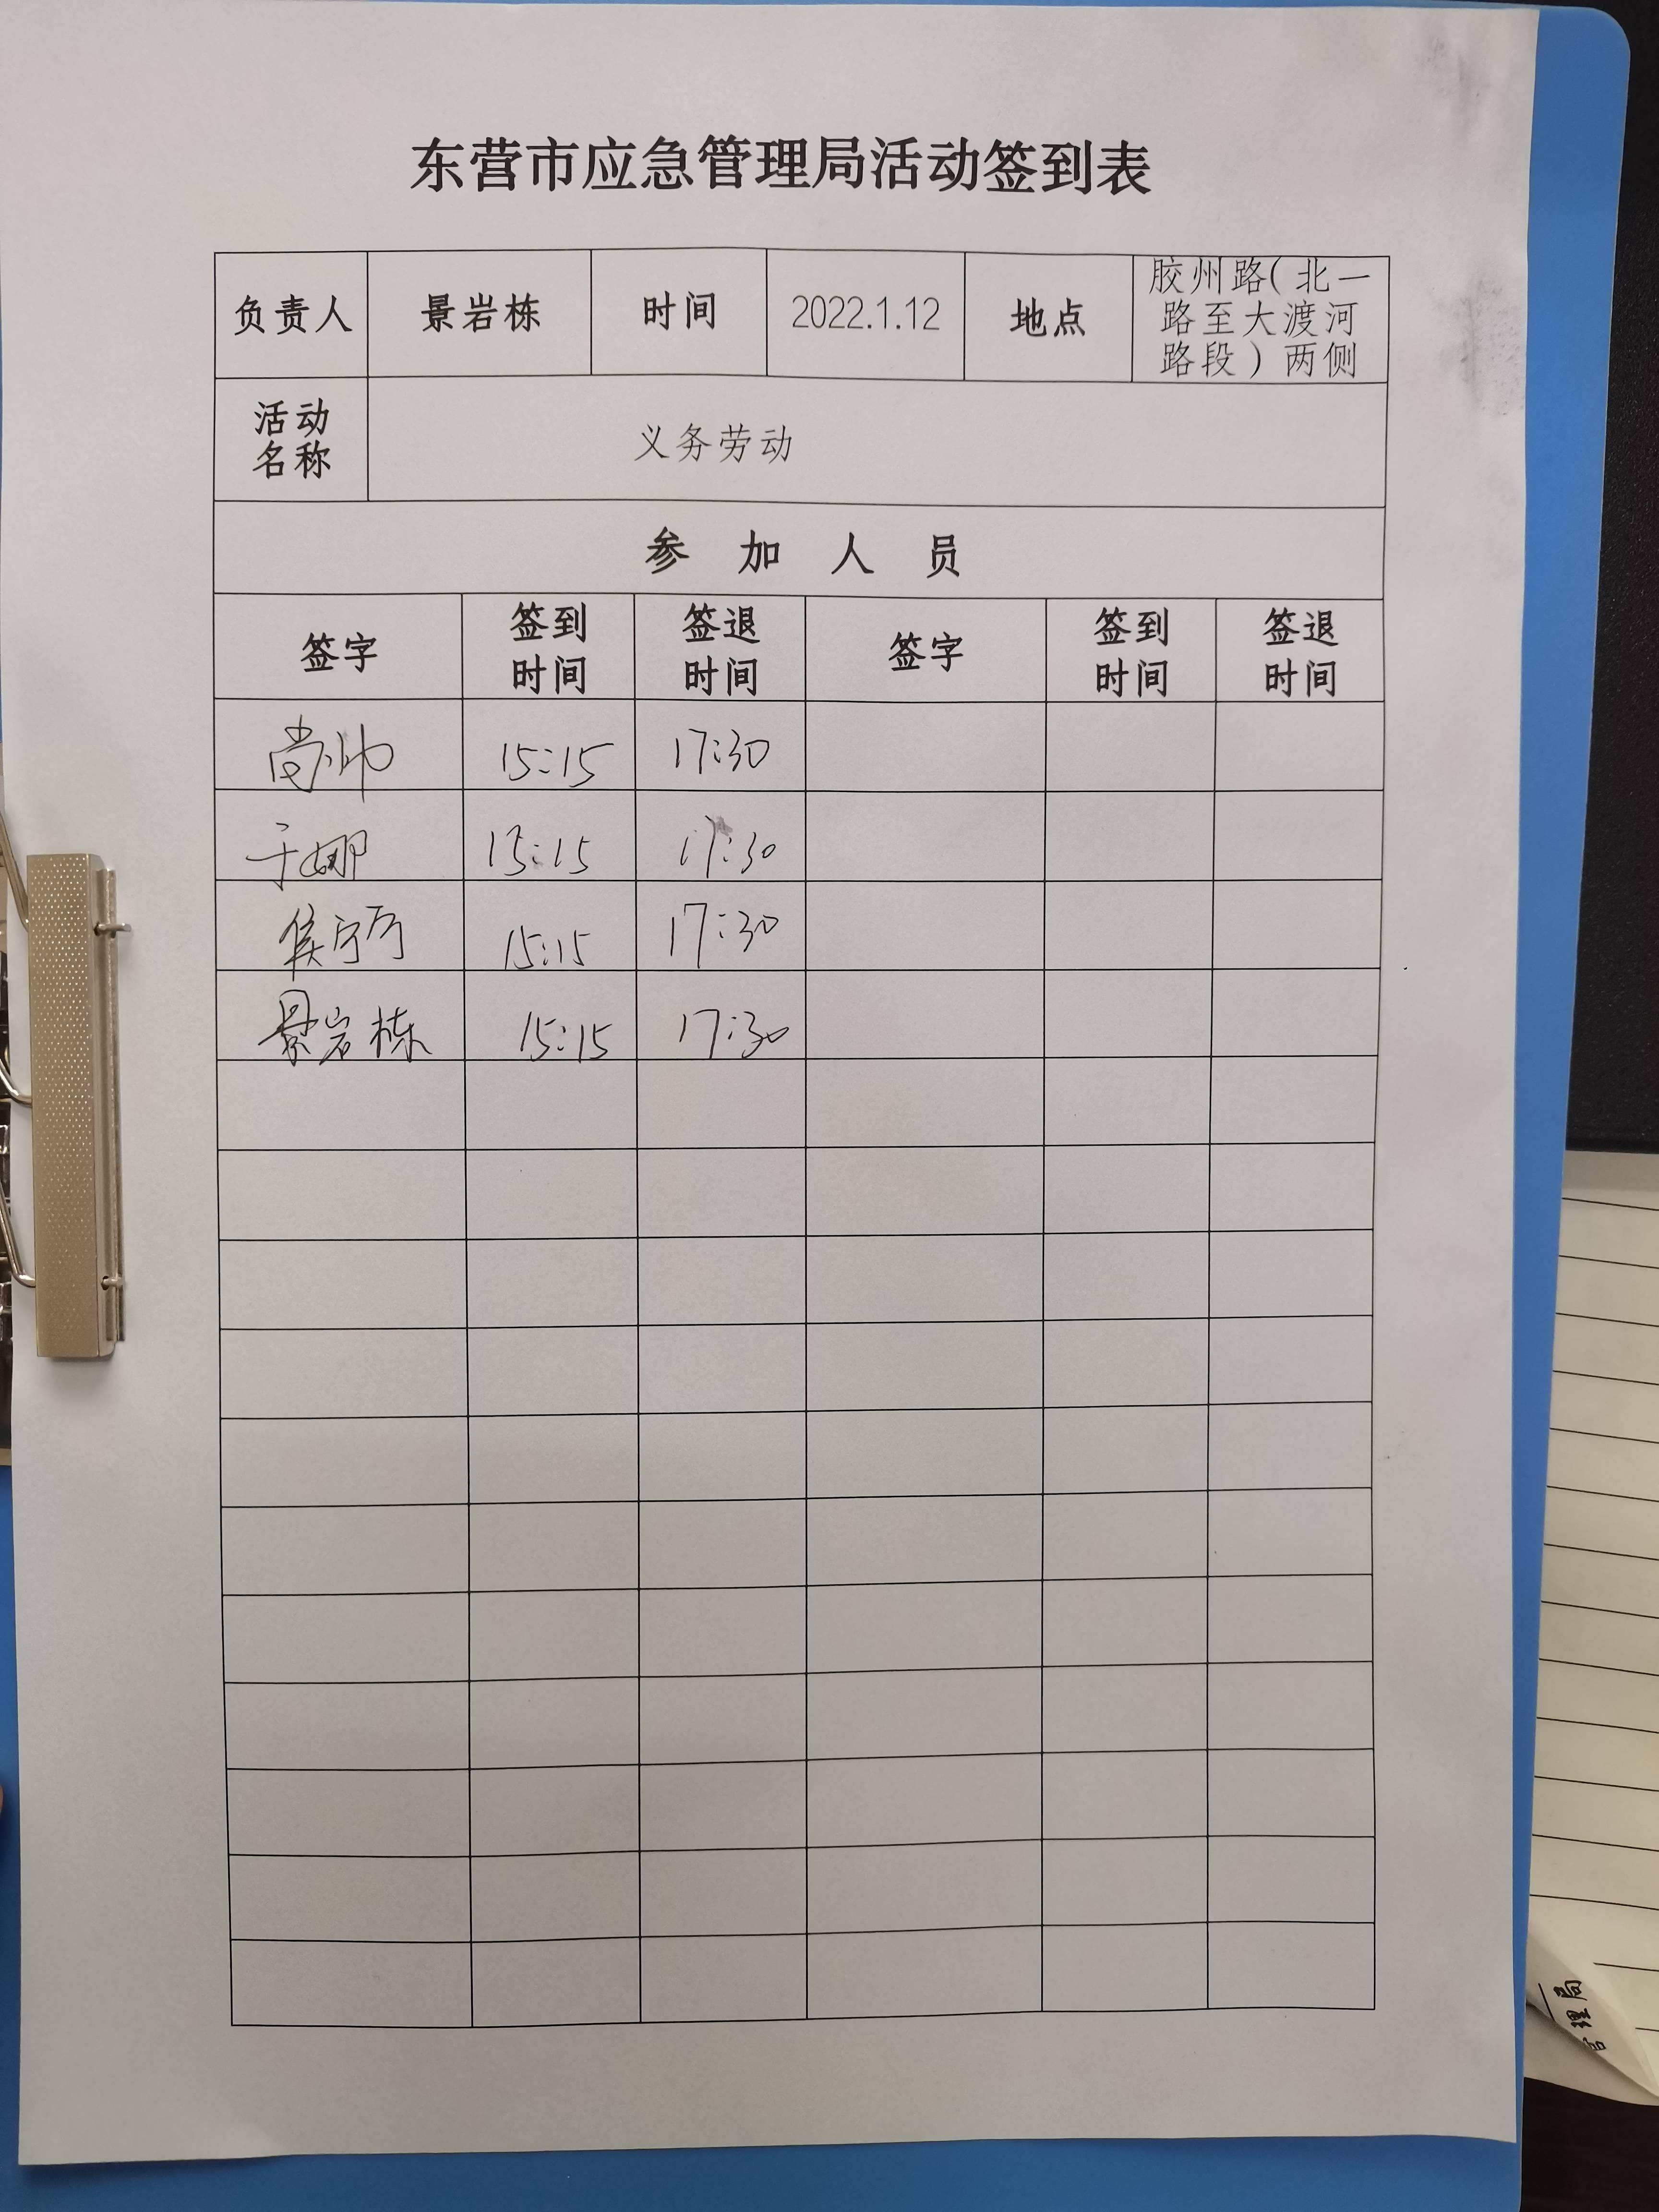 东营市应急管理局活动签到表
负责人 景岩栋 时间 2022.1.12 地点 胶州路(北一
路至大渡河
路段)两侧
活动
名称
义务劳动
参加人员
签字 签到 签退 签字 签到 签退
时间 时间 时间 时间
尚帅 15:15 17:30
于娜 15:15 17:30
侯宁宁 15:15 17:30
景岩栋 15:15 17:30
理局